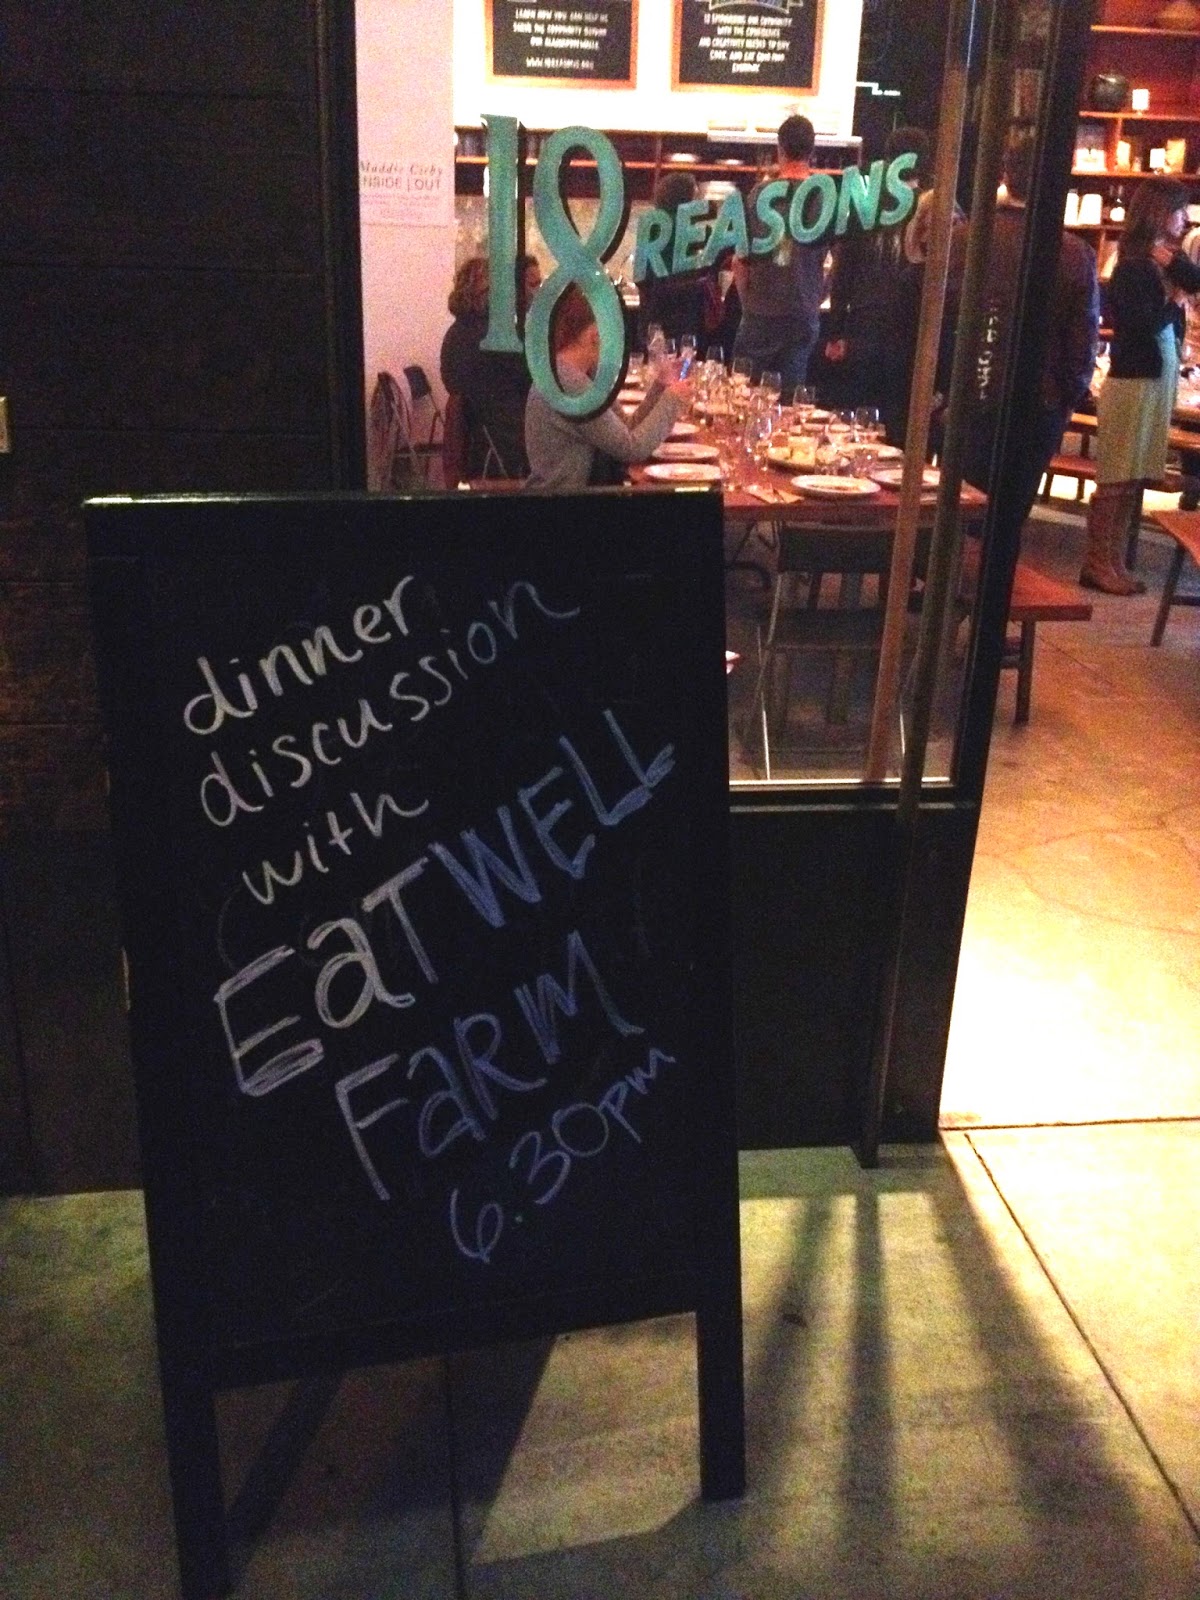 LEARN HOW YOU CAN HELP US
SERVE THE COMMUNITY BEYOND
OUR CLASSROOM WALLS.
WWW.18REASONS.ORG
IS EMPOWERING OUR COMMUNITY
WITH THE CONFIDENCE
AND CREATIVITY NEEDED TO BUY,
COOK, AND EAT GOOD FOOD
EVERYDAY.
INSIDE | OUT
18 REASONS
dinner
discussion
with
EaTWELL
FaRM
6.30pm